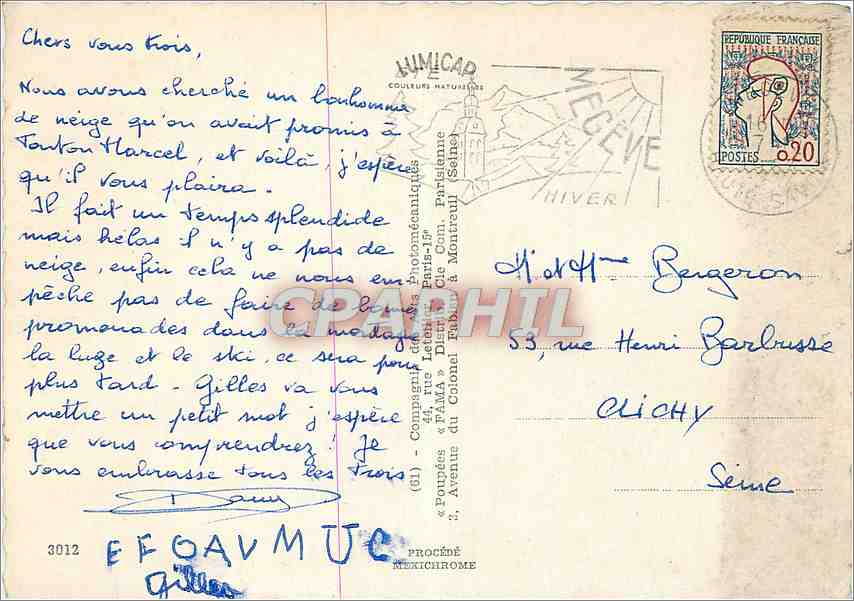 Chers vous trois,
Nous avons cherché un bonhomme
de neige qu'on avait promis à
Tonton Marcel, et voilà, j'espère
qu'il vous plaira.
Il fait un temps splendide
mais hélas il n'y a pas de
neige, enfin cela ne nous em-
pêche pas de faire de bonnes
promenades dans la montagne
la luge et le ski, ce sera pour
plus tard - Gilles va vous
mettre un petit mot j'espère
que vous comprendrez! Je
vous embrasse tous les trois
EFOAVMUC
Gilles
3012
LUMICAP
COULEURS NATURELLES
MEGÈVE
HIVER
REPUBLIQUE FRANÇAISE
POSTES 0,20
(61) - Compagnie des Arts Photomécaniques
44, rue Letellier Paris-15e
« Poupées « FAMA » Distrib. Cie Com. Parisienne
3, Avenue du Colonel Fabien à Montreuil (Seine)
PROCÉDÉ
MEXICHROME
Mr et Mme Bergeron
53, rue Henri Barbusse
CLICHY
Seine
CPAPHIL